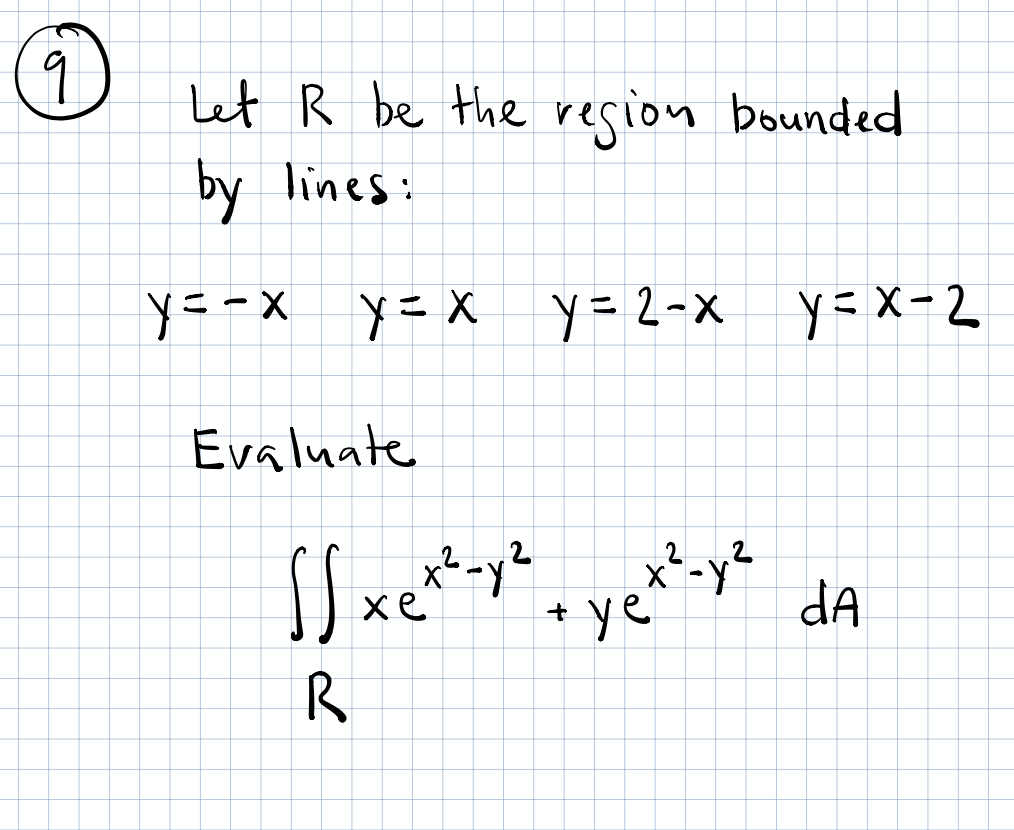 9
Let R be the region bounded
by lines:
y = -x y = x y = 2-x y = x-2
Evaluate
∬ xe^{x²-y²} + ye^{x²-y²} dA
R